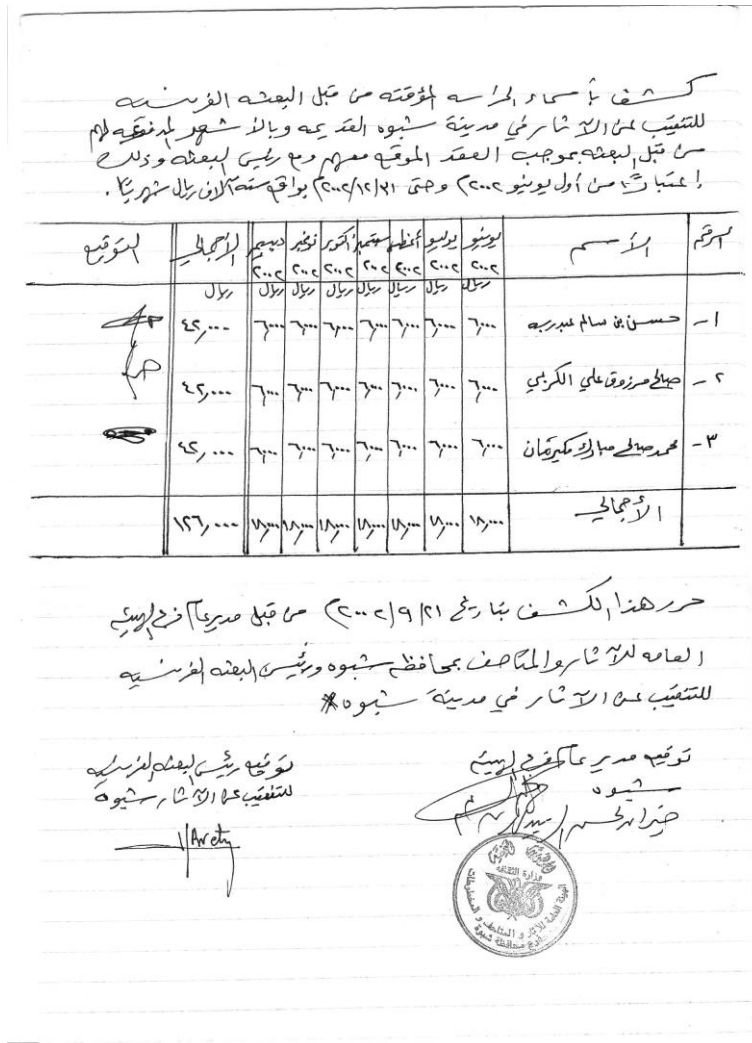 كشف بأسماء الحراسه المؤقته من قبل البعثه الفرنسيه
للتنقيب عن الآثار في مدينة شبوه القديمه وبالأشهر المدفوعه لهم
من قبل البعثه بموجب العقد الموقع معهم ومع رئيس البعثه وذلك
إعتباراً من أول يونيو ٢٠٠٢م وحتى ٣١/١٢/٢٠٠٢م بواقع ستة آلاف ريال شهرياً.
الرقم الأسم يونيو ٢٠٠٢ يوليو ٢٠٠٢ أغسطس ٢٠٠٢ سبتمبر ٢٠٠٢ أكتوبر ٢٠٠٢ نوفمبر ٢٠٠٢ ديسمبر ٢٠٠٢ الأجمالي التوقيع
ريال ريال ريال ريال ريال ريال ريال ريال
١- حسن بن سالم عبدربه ٦,٠٠٠ ٦,٠٠٠ ٦,٠٠٠ ٦,٠٠٠ ٦,٠٠٠ ٦,٠٠٠ ٦,٠٠٠ ٤٢,٠٠٠
٢- صالح مرزوق علي الكربي ٦,٠٠٠ ٦,٠٠٠ ٦,٠٠٠ ٦,٠٠٠ ٦,٠٠٠ ٦,٠٠٠ ٦,٠٠٠ ٤٢,٠٠٠
٣- محمد صالح مبارك ٦,٠٠٠ ٦,٠٠٠ ٦,٠٠٠ ٦,٠٠٠ ٦,٠٠٠ ٦,٠٠٠ ٦,٠٠٠ ٤٢,٠٠٠
الأجمالي ١٨,٠٠٠ ١٨,٠٠٠ ١٨,٠٠٠ ١٨,٠٠٠ ١٨,٠٠٠ ١٨,٠٠٠ ١٨,٠٠٠ ١٢٦,٠٠٠
حرر هذا الكشف بتاريخ ٢١/٩/٢٠٠٢م من قبل مدير عام فرع الهيئه
العامه للآثار والمتاحف بمحافظة شبوه ورئيس البعثه الفرنسيه
للتنقيب عن الآثار في مدينة شبوه
توقيع مدير عام فرع الهيئه
شبوه
توقيع رئيس البعثه الفرنسيه
للتنقيب عن الآثار شبوة
وزارة الثقافة
الهيئة العامة للآثار و المتاحف و المخطوطات
فرع محافظة شبوة